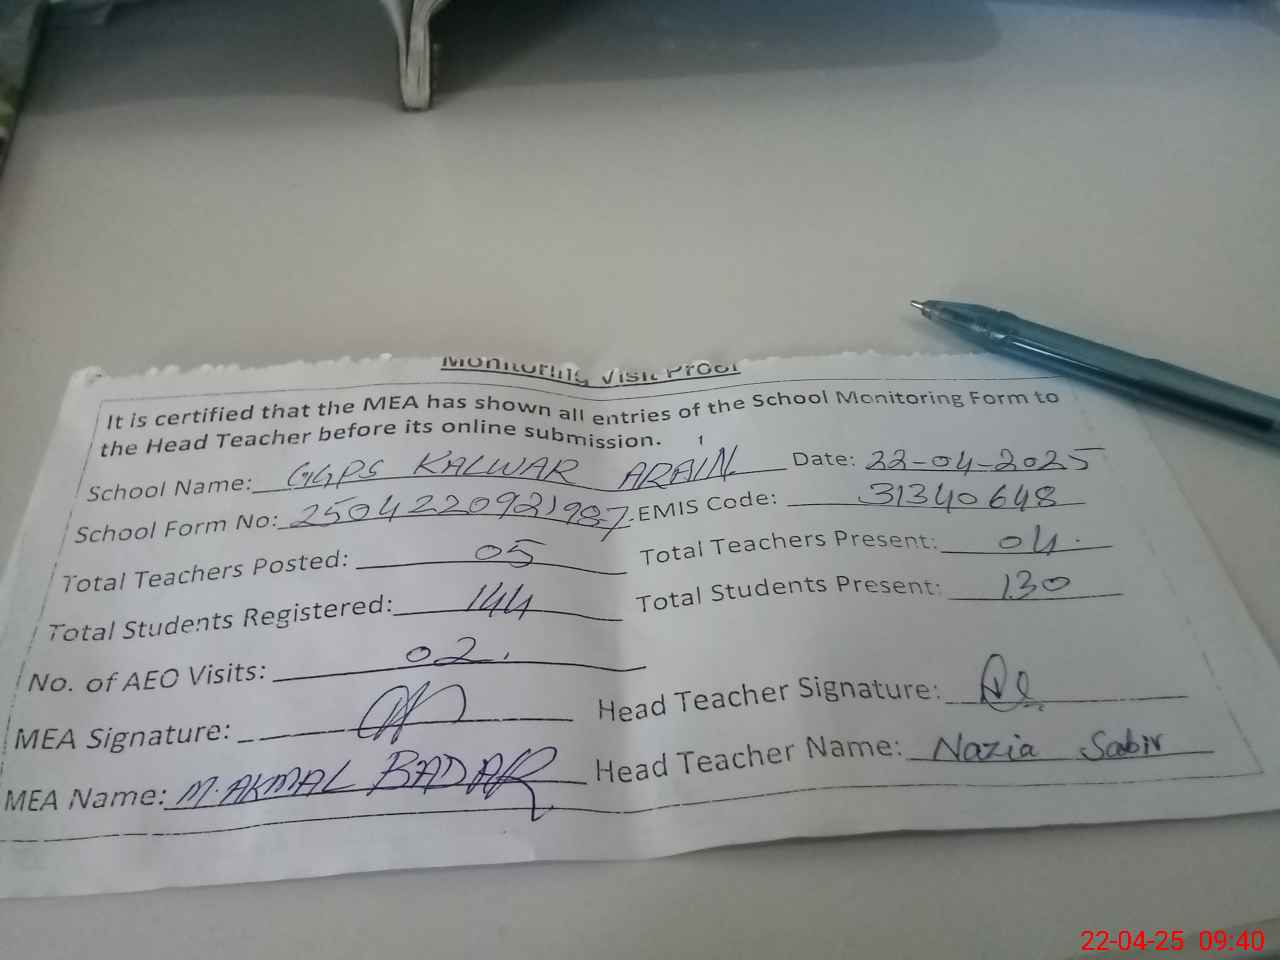 Monitoring Visit Proof
It is certified that the MEA has shown all entries of the School Monitoring Form to
the Head Teacher before its online submission.
School Name: GGPS KALWAR ARAIN Date: 22-04-2025
School Form No: 2504220921987 EMIS Code: 31340648
Total Teachers Posted: 05 Total Teachers Present: 04
Total Students Registered: 144 Total Students Present: 130
No. of AEO Visits: 02
MEA Signature: Head Teacher Signature:
MEA Name: M. AKMAL BADAR Head Teacher Name: Nazia Sabir
22-04-25 09:40